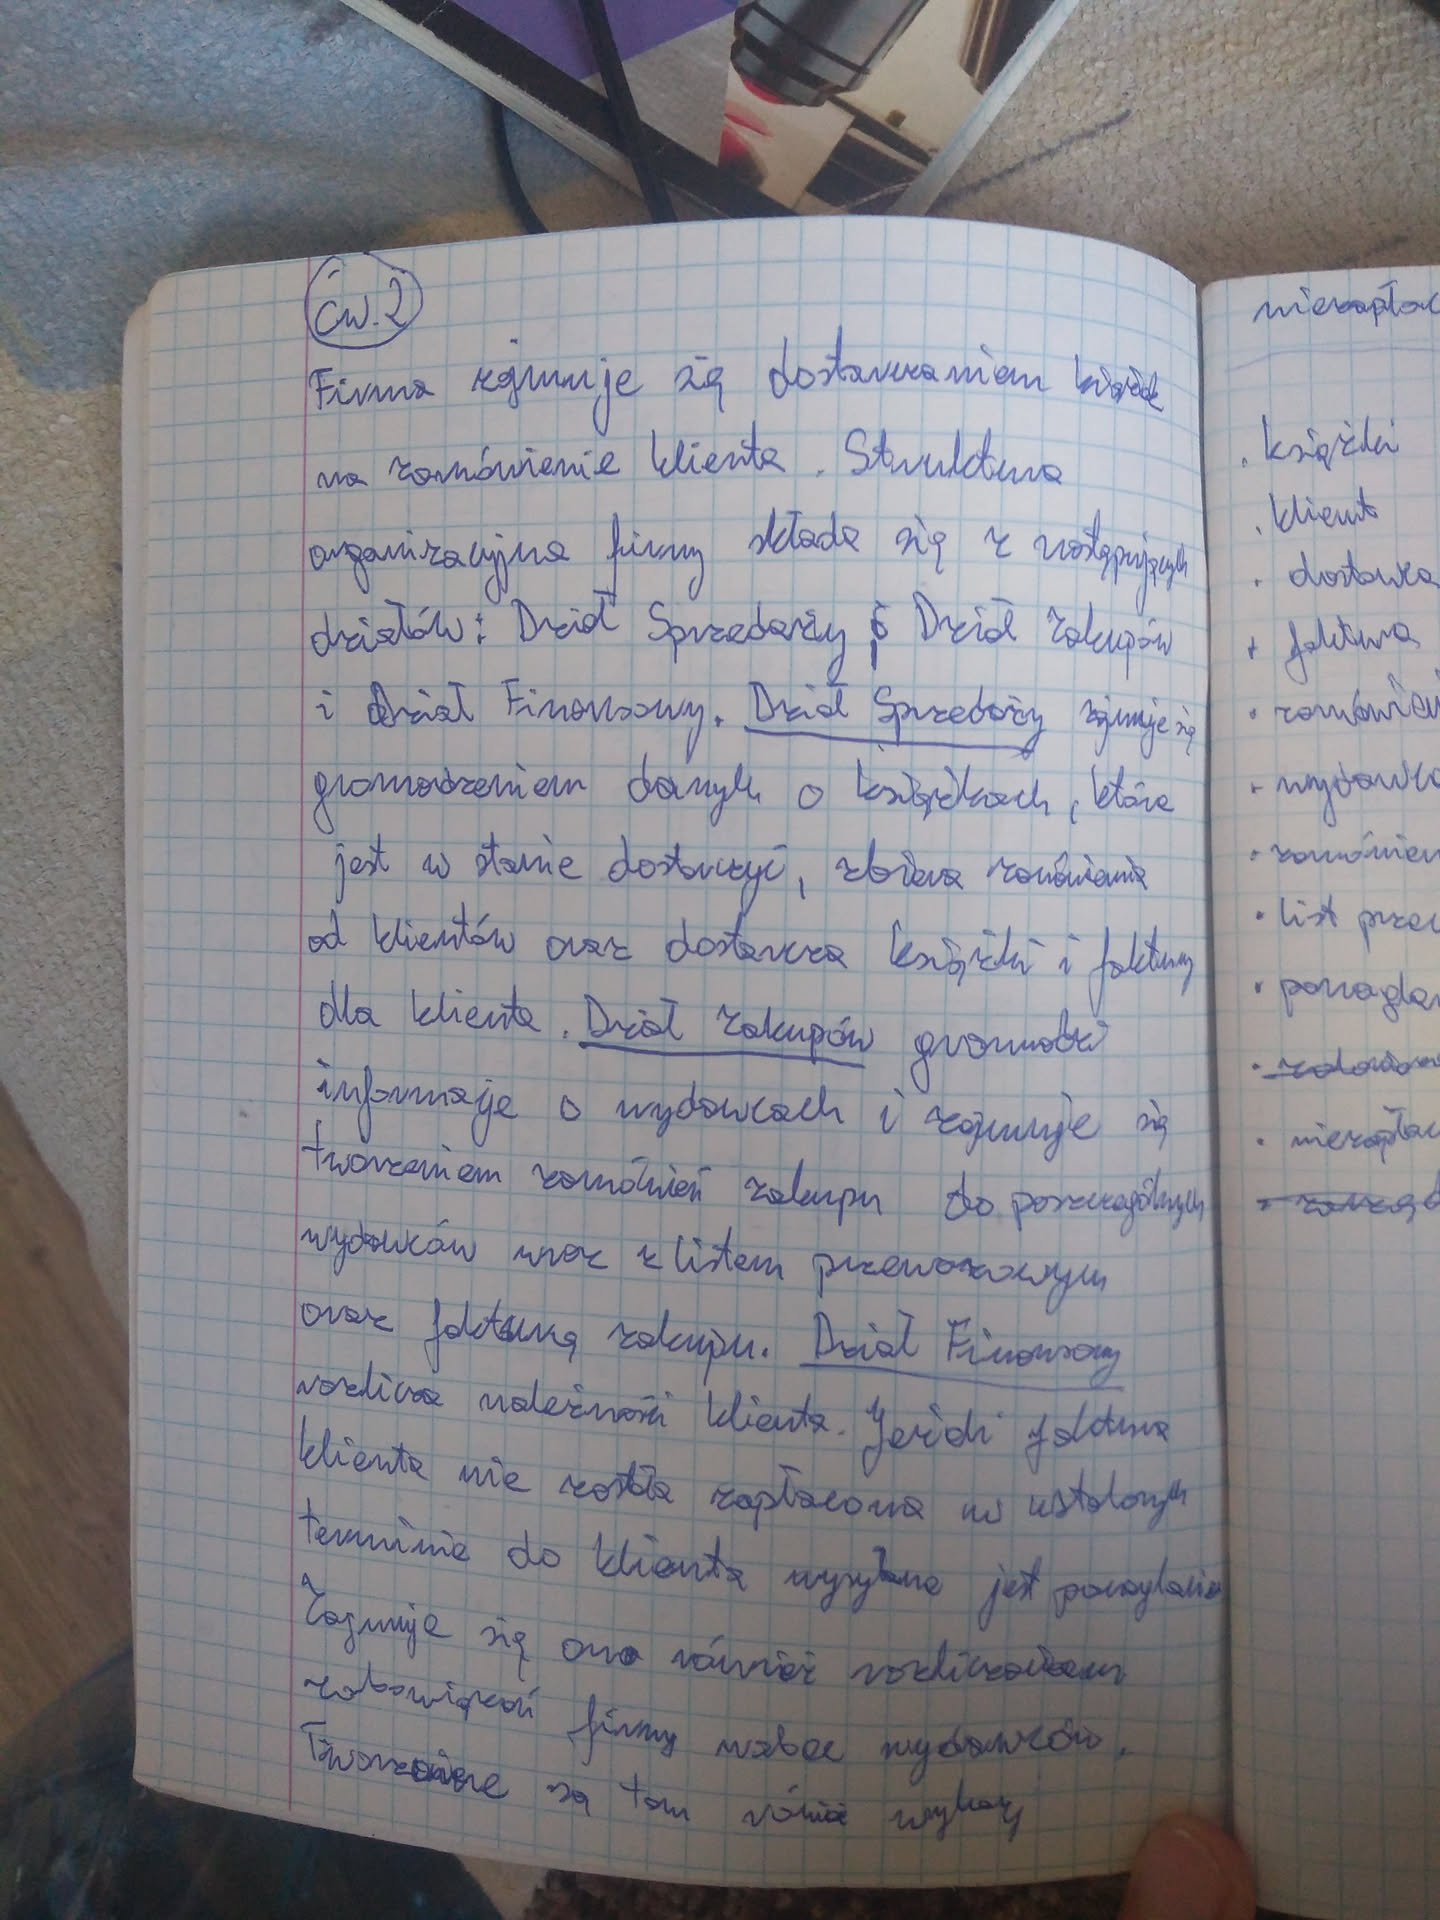 Ćw. 2
Firma zajmuje się dostarczaniem książek
na zamówienie klienta. Struktura
organizacyjna firmy składa się z następujących
działów: Dział Sprzedaży, Dział Zakupów
i Dział Finansowy. Dział Sprzedaży zajmuje się
gromadzeniem danych o książkach, które
jest w stanie dostarczyć, zbiera zamówienia
od klientów oraz dostarcza książki i faktury
dla klienta. Dział Zakupów gromadzi
informacje o wydawcach i zajmuje się
tworzeniem zamówień zakupu do poszczególnych
wydawców wraz z listem przewozowym
oraz fakturą zakupu. Dział Finansowy
rozlicza należności klienta. Jeżeli faktura
klienta nie została zapłacona w ustalonym
terminie do klienta wysyłane jest ponaglenie
Zajmuje się ono również rozliczaniem
zobowiązań firmy wobec wydawców.
Tworzone są tam również wykazy
. książki
. klient
. dostawa
+ faktura
. list